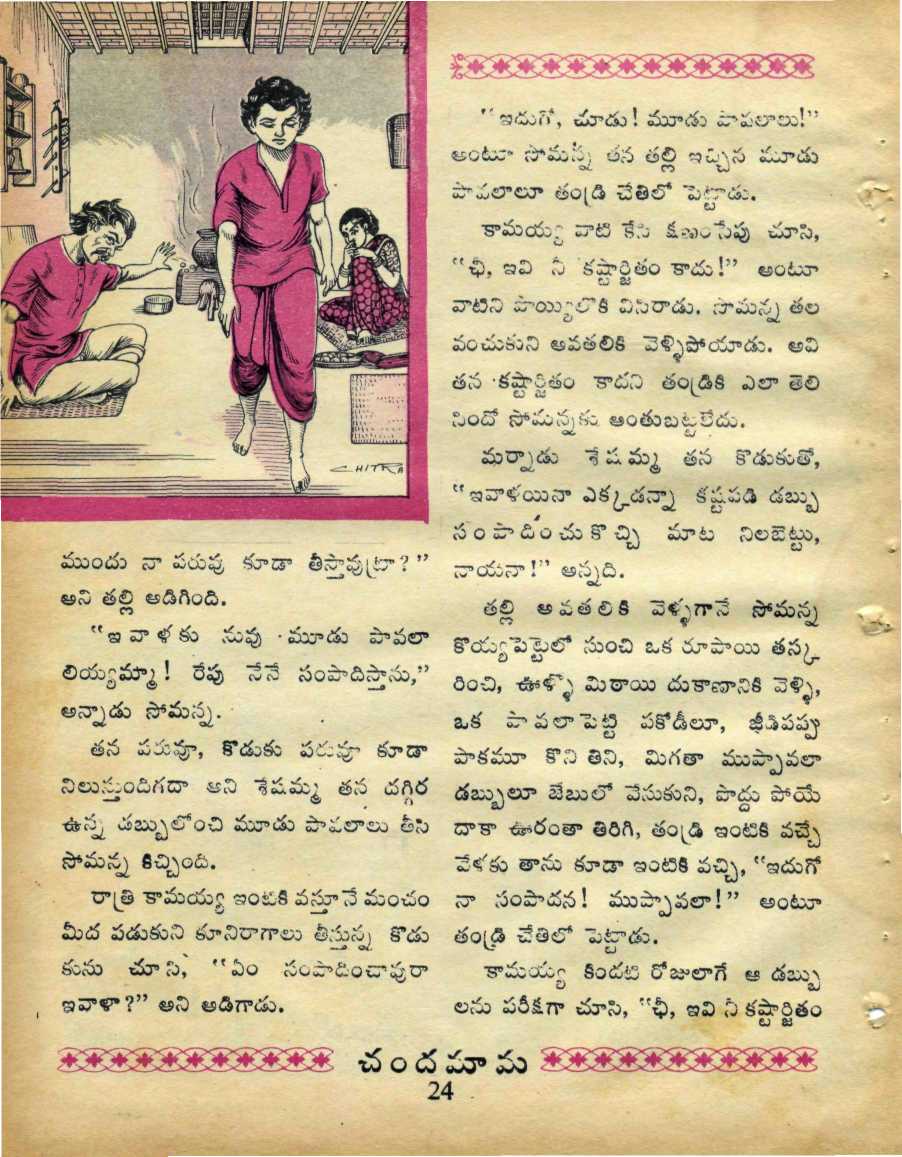 CHITRA
ముందు నా పరువు కూడా తీస్తావుట్రా?”
అని తల్లి అడిగింది.
“ఇవాళకు నువు మూడు పావలా
లియ్యమ్మా! రేపు నేనే సంపాదిస్తాను,”
అన్నాడు సోమన్న.
తన పరువూ, కొడుకు పరువూ కూడా
నిలుస్తుందిగదా అని శేషమ్మ తన దగ్గిర
ఉన్న డబ్బులోంచి మూడు పావలాలు తీసి
సోమన్న కిచ్చింది.
రాత్రి కామయ్య ఇంటికి వస్తూనే మంచం
మీద పడుకుని కూనిరాగాలు తీస్తున్న కొడు
కును చూసి, “ఏం సంపాదించావురా
ఇవాళా?” అని అడిగాడు.
“ఇదుగో, చూడు! మూడు పావలాలు!”
అంటూ సోమన్న తన తల్లి ఇచ్చిన మూడు
పావలాలూ తండ్రి చేతిలో పెట్టాడు.
కామయ్య వాటి కేసి క్షణంసేపు చూసి,
“ఛీ, ఇవి నీ కష్టార్జితం కాదు!” అంటూ
వాటిని పొయ్యిలోకి విసిరాడు. సోమన్న తల
వంచుకుని అవతలికి వెళ్ళిపోయాడు. అవి
తన కష్టార్జితం కాదని తండ్రికి ఎలా తెలి
సిందో సోమన్నకు అంతుబట్టలేదు.
మర్నాడు శేషమ్మ తన కొడుకుతో,
“ఇవాళయినా ఎక్కడన్నా కష్టపడి డబ్బు
సంపాదించుకొచ్చి మాట నిలబెట్టు,
నాయనా!” అన్నది.
తల్లి అవతలికి వెళ్ళగానే సోమన్న
కొయ్యపెట్టెలో నుంచి ఒక రూపాయి తస్క
రించి, ఊళ్ళో మిఠాయి దుకాణానికి వెళ్ళి,
ఒక పావలాపెట్టి పకోడీలూ, జీడిపప్పు
పాకమూ కొని తిని, మిగతా ముప్పావలా
డబ్బులూ జేబులో వేసుకుని, పొద్దు పోయే
దాకా ఊరంతా తిరిగి, తండ్రి ఇంటికి వచ్చే
వేళకు తాను కూడా ఇంటికి వచ్చి, “ఇదుగో
నా సంపాదన! ముప్పావలా!” అంటూ
తండ్రి చేతిలో పెట్టాడు.
కామయ్య కిందటి రోజులాగే ఆ డబ్బు
లను పరీక్షగా చూసి, “ఛీ, ఇవి నీ కష్టార్జితం
చందమామ
24